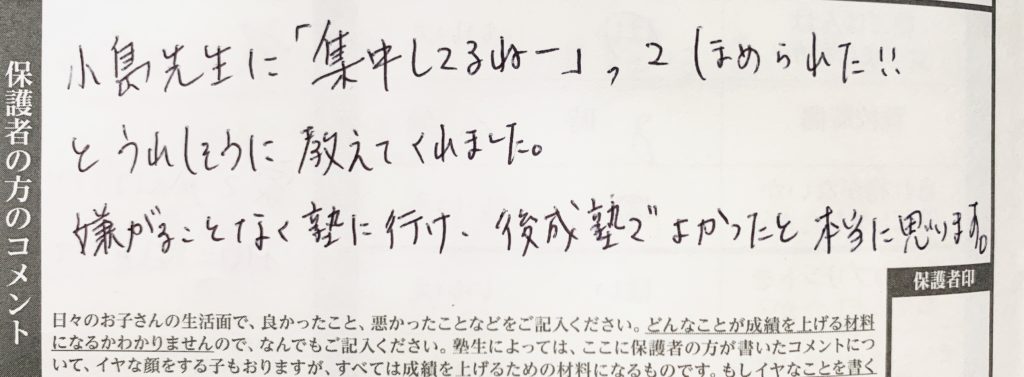 保護者の方のコメント
小島先生に「集中してるねー」って ほめられた!!
とうれしそうに 教えてくれました。
嫌がることなく塾に行け、後成塾でよかったと本当に思います。
保護者印
日々のお子さんの生活面で、良かったこと、悪かったことなどをご記入ください。どんなことが成績を上げる材料
になるかわかりませんので、なんでもご記入ください。塾生によっては、ここに保護者の方が書いたコメントにつ
いて、イヤな顔をする子もおりますが、すべては成績を上げるための材料になるものです。もしイヤなことを書く